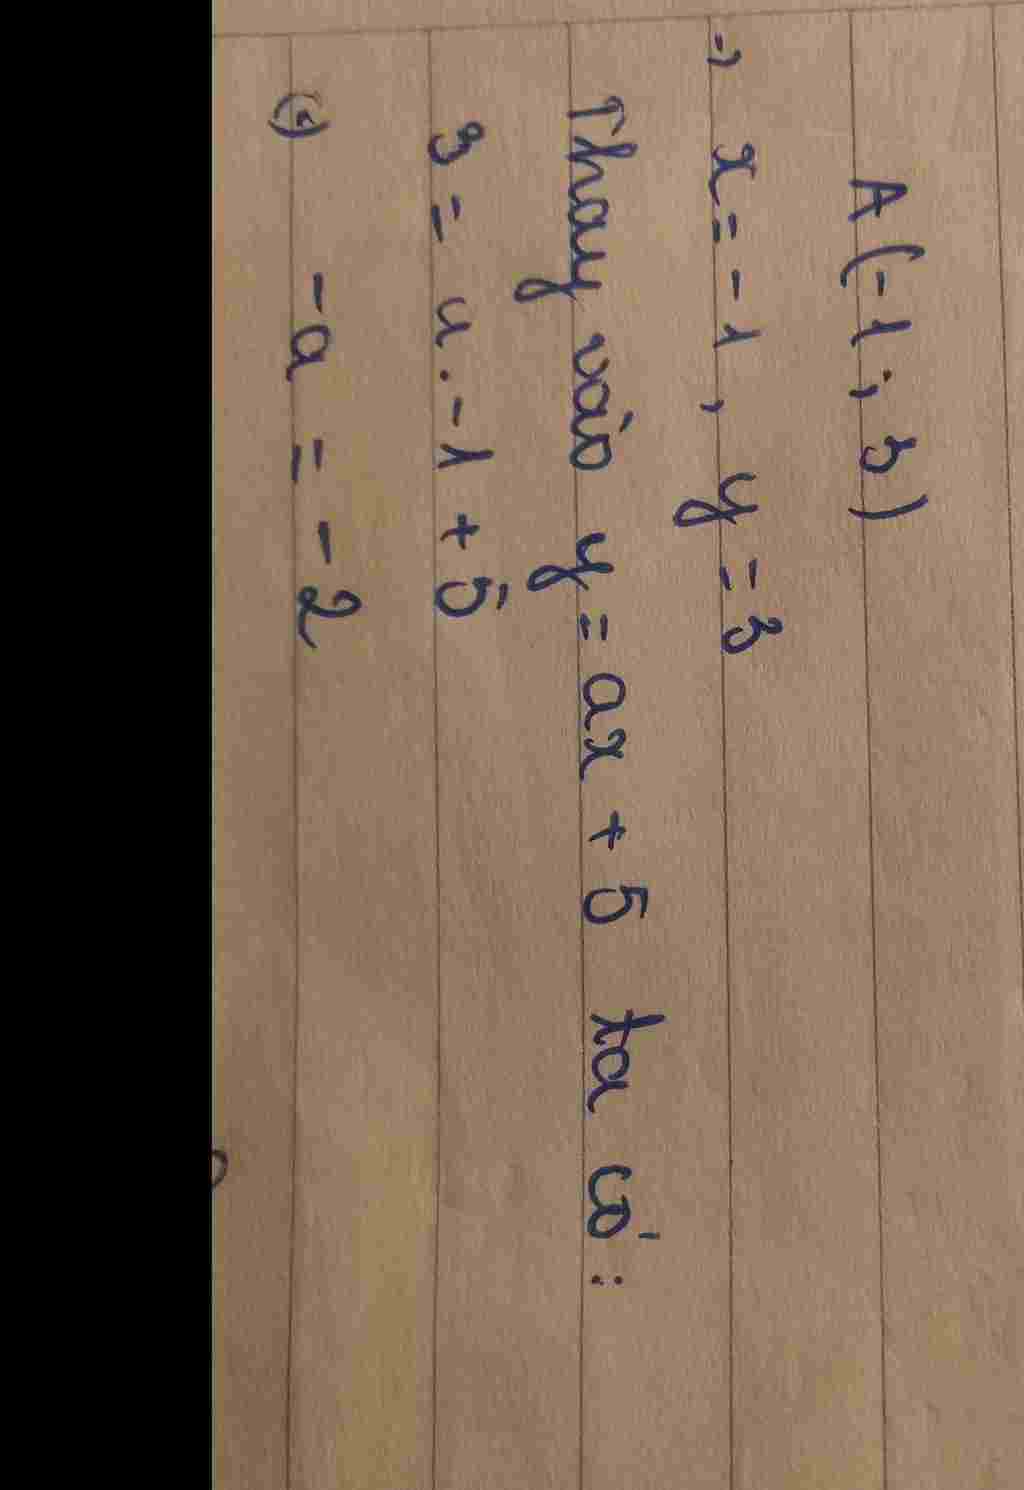 A (-1; 3)
→ x = -1, y = 3
Thay vào y = ax + 5 ta có:
3 = a . -1 + 5
(=) -a = -2